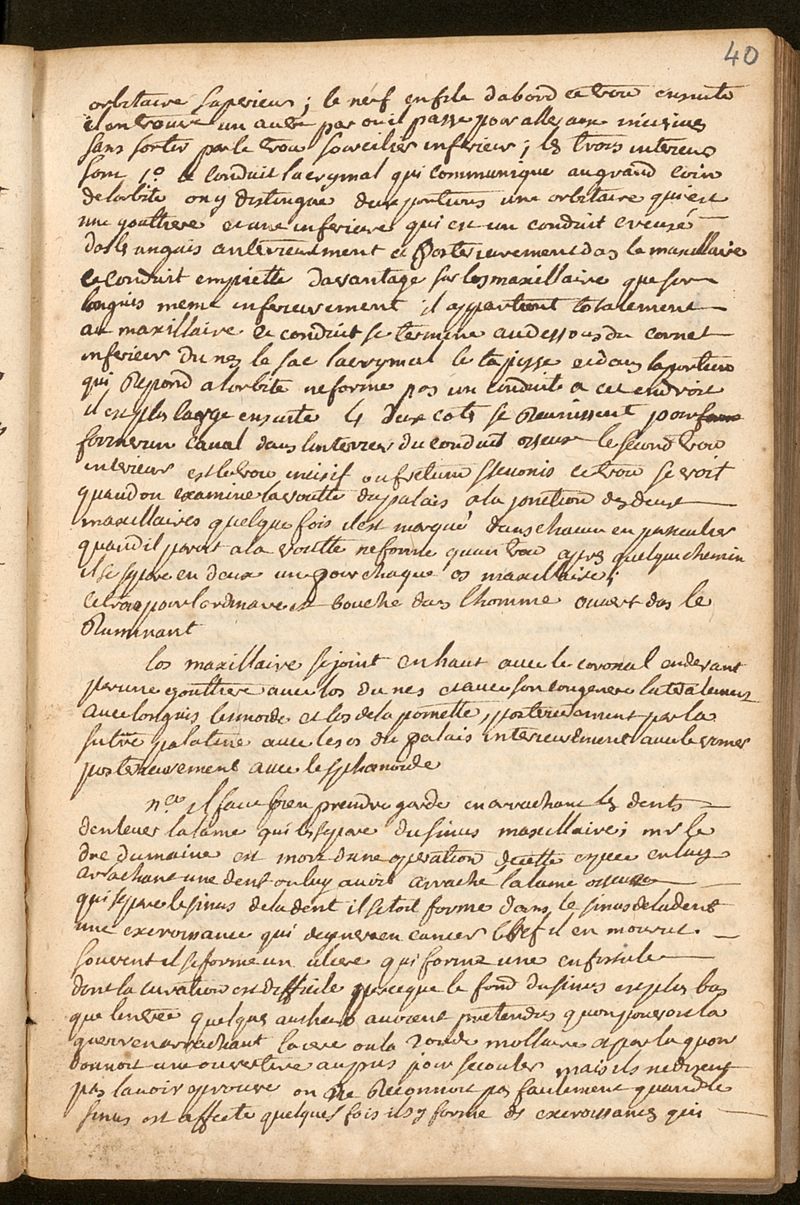 40
orbitaire superieur; le nerf enfile dabord ce trou ensuite
il en trouve un autre par ou il passe pour aller aux incisives
sans sortir par le trou sourcilier inferieur; les trois interieurs
sont 1º le conduit lacrymal qui communique au grand coin
de lorbite on y distingue deux portions une orbitaire qui est
une gouttiere et une inferieure qui est un conduit creusé
dans languis anterieurement et posterieurement dans le maxillaire
ce conduit empiette davantage sur los maxillaire que sur
longuis meme inferieurement il appartient totalement
au maxillaire ce conduit se termine audessous du cornet
inferieur du nez le sac lacrymal le tapisse et dans la portion
qui repond a lorbite ne forme pas un conduit a cet endroit
il est plus large ensuite les deux cotés se reunissent pour
former un canal dans linterieur du conduit osseux le second trou
interieur est le trou incisif ou stenonis ce trou se voit
quand on examine la voutte du palais a la jonction des deux
maxillaires quelque fois il est marqué dans chacun en particulier
quand il paroit a la voutte ne forme quun trou apres quelque chemin
il se separe en deux un pour chaque os maxillaire;
ce trou pour lordinaire est bouché dans lhomme ouvert dans le
Ruminant
los maxillaire se joint en haut avec le coronal en devant
par une gouttiere avec los du nes et avec son congenere lateralement
avec longuis lesmoide et los de la pomette, posterieurement par la
suture palatine avec les os du palais interieurement avec le vomer
posterieurement avec le sphenoide
nta il faut bien prendre garde en arrachant les dents
denlever la lame qui les separe du sinus maxillaire; mr le
duc dumaine est mort dune operation de cette espece en luy
arrachant une dent on luy avoit arraché la lame osseuse
qui separe le sinus de la dent il setoit formé dans le sinus de la dent
une excroissance qui degenera en cancer bref il en mourut.
souvent il se forme un ulcere qui forme une fistule
dont la curation est difficile parceque le fond du sinus est plus bas
que lentrée quelques autheurs avoient pretendus quon pouvoit la
guerir en arrachant la ou la 2onde mollaire et par la quon
donnoit une ouverture au pus pour secouler mais ils ne disent
pas lavoir eprouvé on ne reconnoit pas facilement quand le
sinus est affecté quelques fois il sy forme des excroissances qui